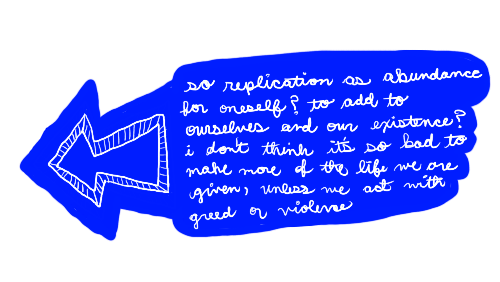 so replication as abundance
for oneself? to add to
ourselves and our existence?
i don't think it's so bad to
make more of the life we are
given, unless we act with
greed or violence